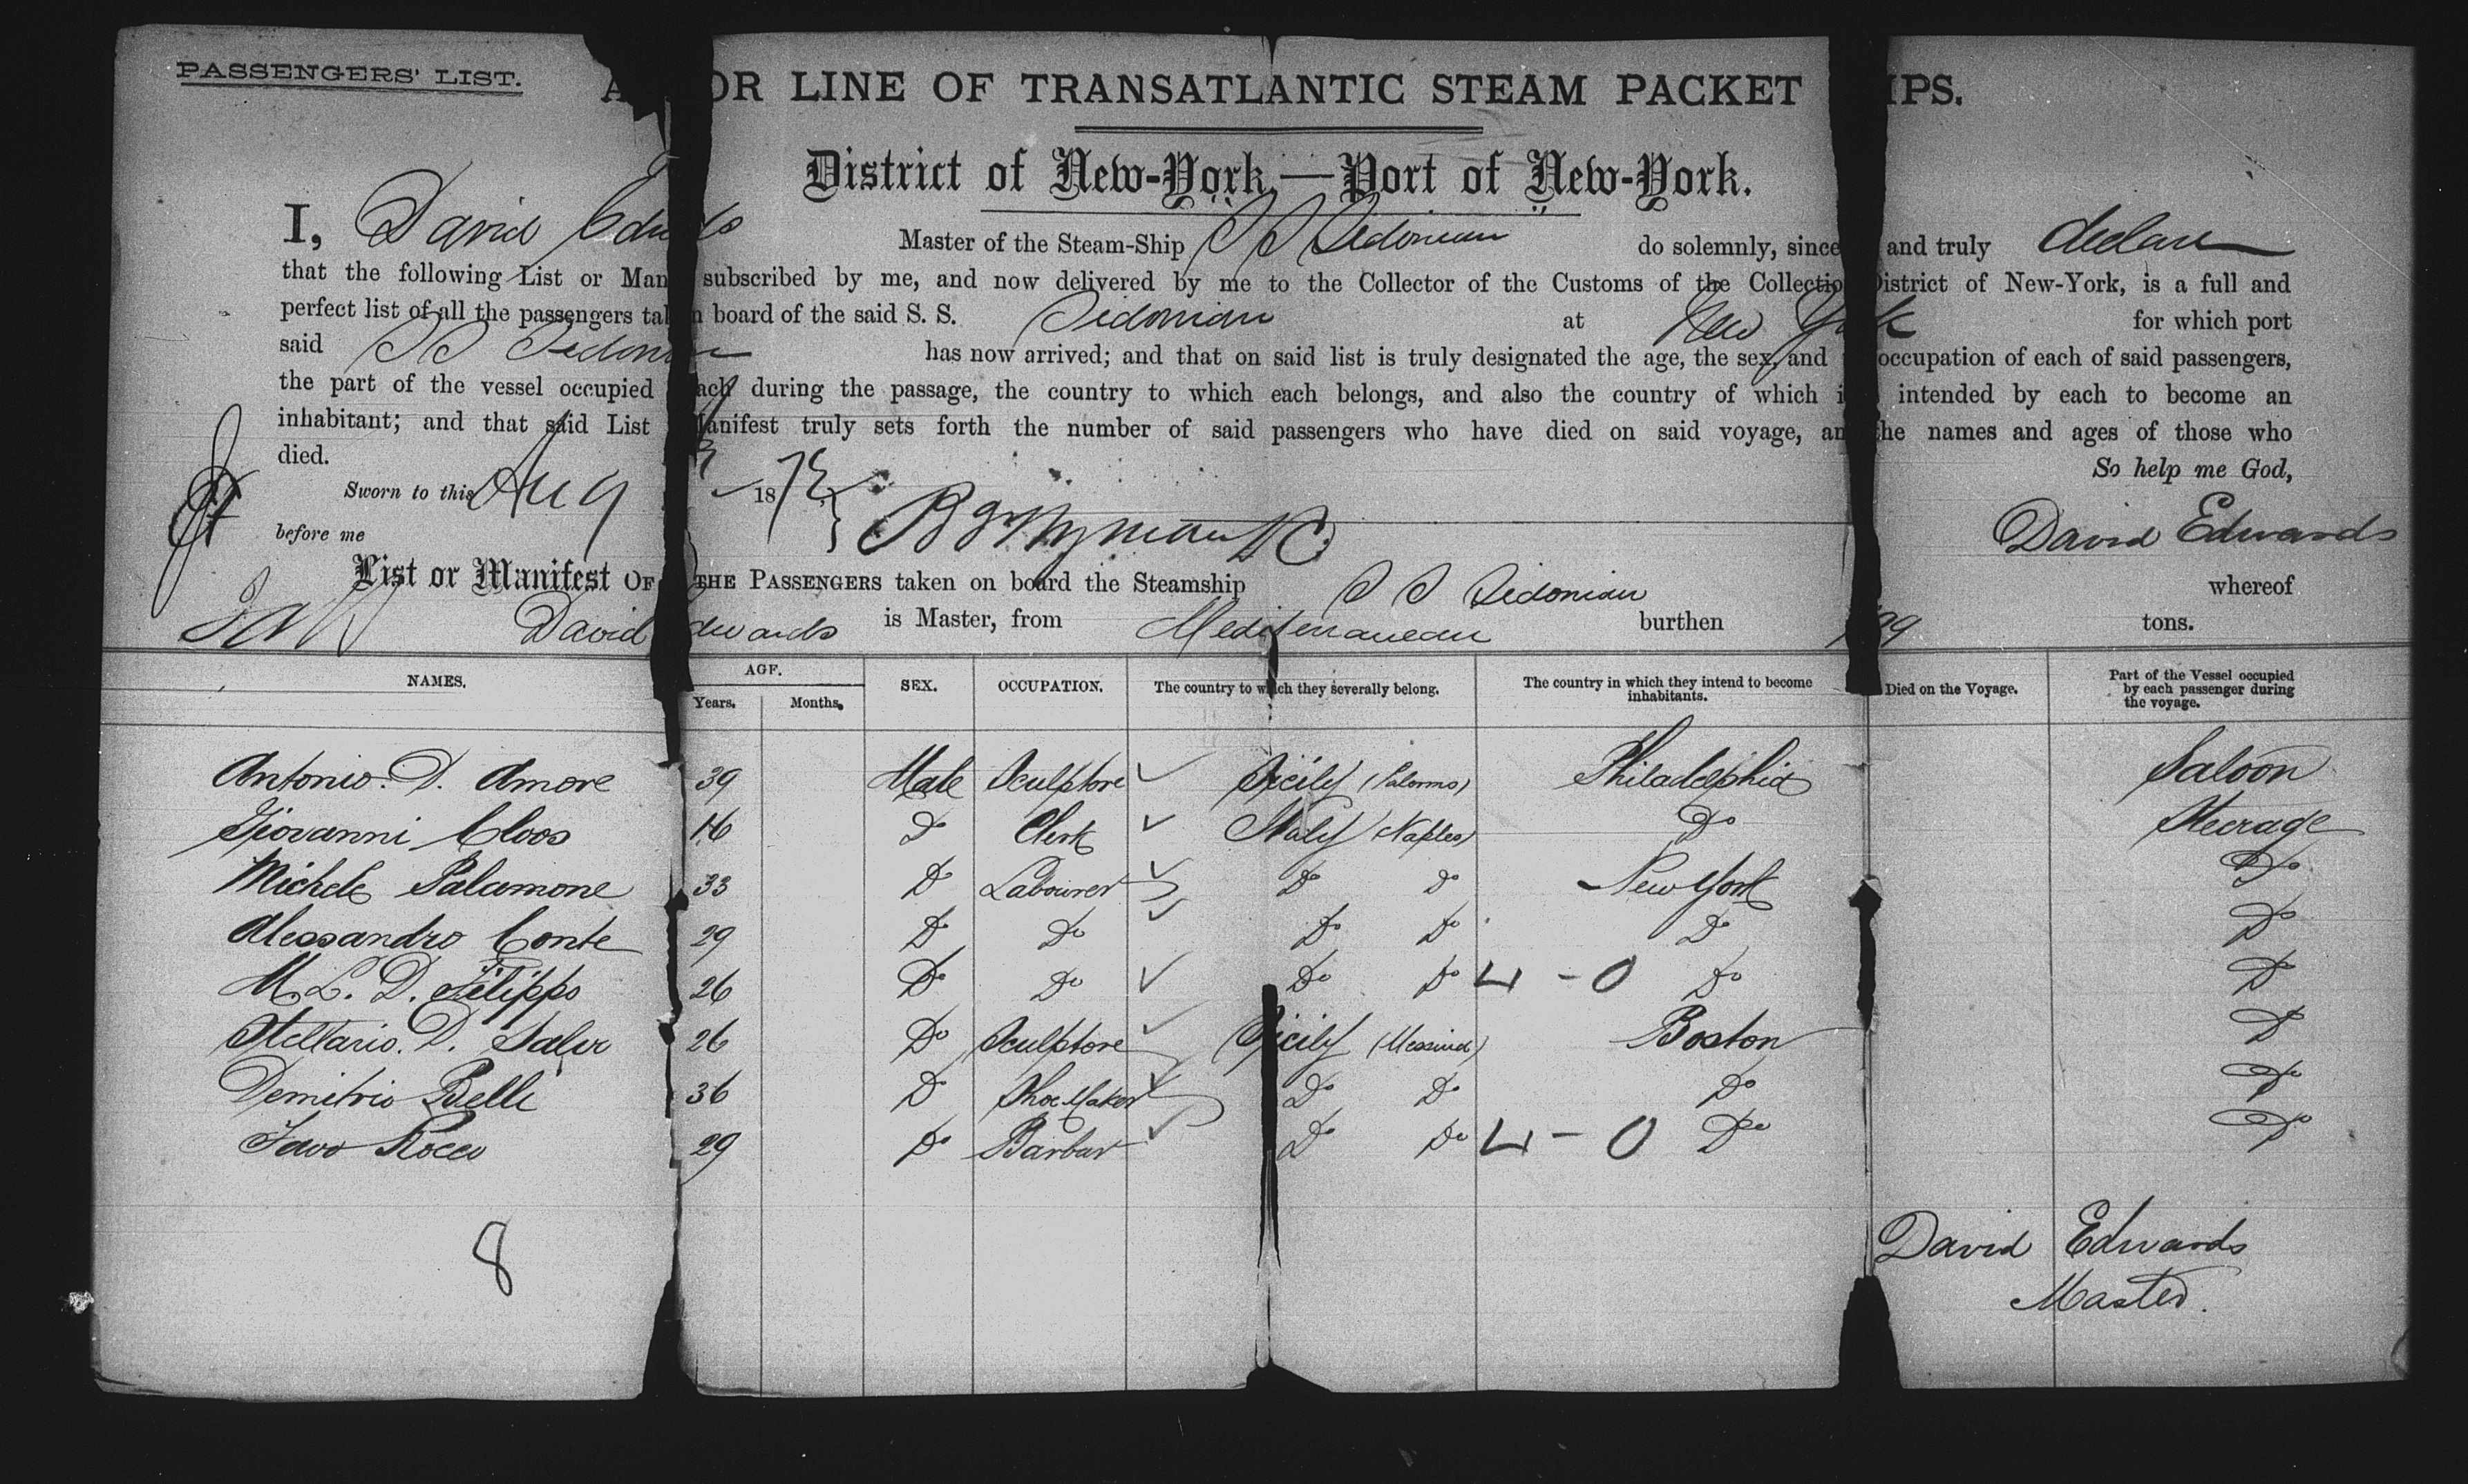 PASSENGERS' LIST.
A OR LINE OF TRANSATLANTIC STEAM PACKET IPS.
District of New-York,—Port of New-York.
I, David Edw ds Master of the Steam-Ship S S Sidonian do solemnly, since and truly declare
that the following List or Man subscribed by me, and now delivered by me to the Collector of the Customs of the Collectio District of New-York, is a full and
perfect list of all the passengers tak n board of the said S. S. Sidonian at New York for which port
said S S Sidonian has now arrived; and that on said list is truly designated the age, the sex, and occupation of each of said passengers,
the part of the vessel occupied each during the passage, the country to which each belongs, and also the country of which i intended by each to become an
inhabitant; and that said List Manifest truly sets forth the number of said passengers who have died on said voyage, an the names and ages of those who
died.
So help me God,
Sworn to this Aug 1873
before me
David Edwards
List or Manifest OF THE PASSENGERS taken on board the Steamship S S Sidonian whereof
David Edwards is Master, from Mediterranean burthen tons.
NAMES. AGE. SEX. OCCUPATION. The country to which they severally belong. The country in which they intend to become inhabitants. Died on the Voyage. Part of the Vessel occupied by each passenger during the voyage.
Years. Months.
Antonio. D. Amore 39 Male Sculptore Sicily (Palermo) Philadelphia Saloon
Giovanni Cloos 16 Do Clerk Italy (Naples) Do Steerage
Michele Palamone 33 Do Labourer Do Do New York Do
Alessandro Conte 29 Do Do Do Do Do Do
M. L. D. Filippo 26 Do Do Do Do Do Do
Stellario. D. Salvo 26 Do Sculptore Sicily (Messina) Boston Do
Demitrio Belli 36 Do Shoe Maker Do Do Do Do
Rocco 29 Do Barbar Do Do Do Do
8
David Edwards
Master.